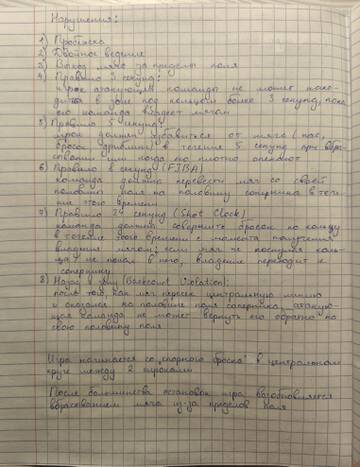 Нарушения:
1) Пробежка
2) Двойное ведение
3) Выход мяча за пределы поля
4) Правило 3 секунд:
игрок атакующей команды не может нахо-
дится в зоне под кольцом более 3 секунд, пока
его команда владеет мячом
5) Правило 5 секунд:
игрок должен избавиться от мяча (пас,
бросок, дриблинг) в течение 5 секунд при вбра-
сывании или когда его плотно опекают
6) Правило 8 секунд (FIBA)
команда должна перевести мяч со своей
половины поля на половину соперника в тече-
ние этого времени
7) Правило 24 секунд (Shot Clock)
команда должна совершить бросок по кольцу
в течение этого времени с момента получения
владения мячом; если мяч не коснулся коль-
ца / не попал в него, владение переходит к
сопернику
8) Назад в зону (Backcourt violation):
после того, как мяч пересек центральную линию
и оказался на половине поля соперника, атакую-
щая команда не может вернуть его обратно на
свою половину поля
Игра начинается со "спорного броска" в центральном
круге между 2 игроками
После большинства остановок игра возобновляется
вбрасыванием мяча из-за пределов поля